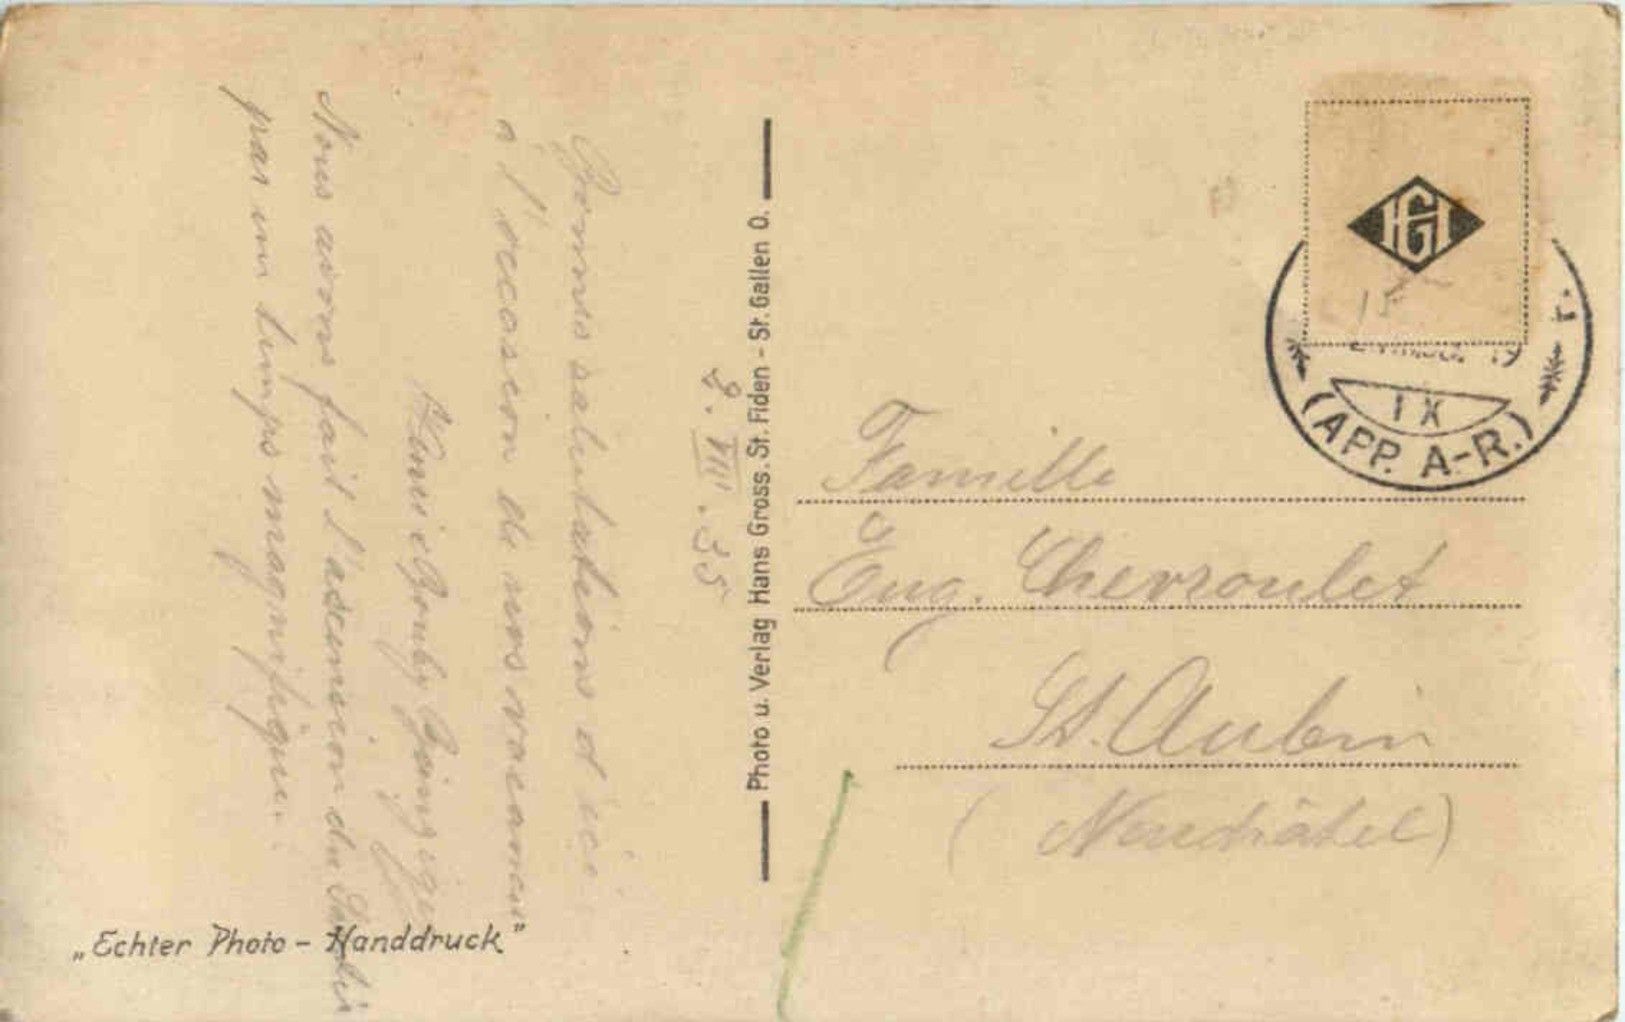 8. VIII. 35
Bonnes salutations d'ici
à l'occasion de nos vacances
Nous avons fait l'ascension du Säntis
par un temps magnifique.
Photo u. Verlag Hans Gross. St. Fiden - St. Gallen O.
„Echter Photo - Handdruck"
HG
15
IX
(APP. A-R.)
Famille
Eug. Chevroulet
St. Aubin
(Neuchâtel)